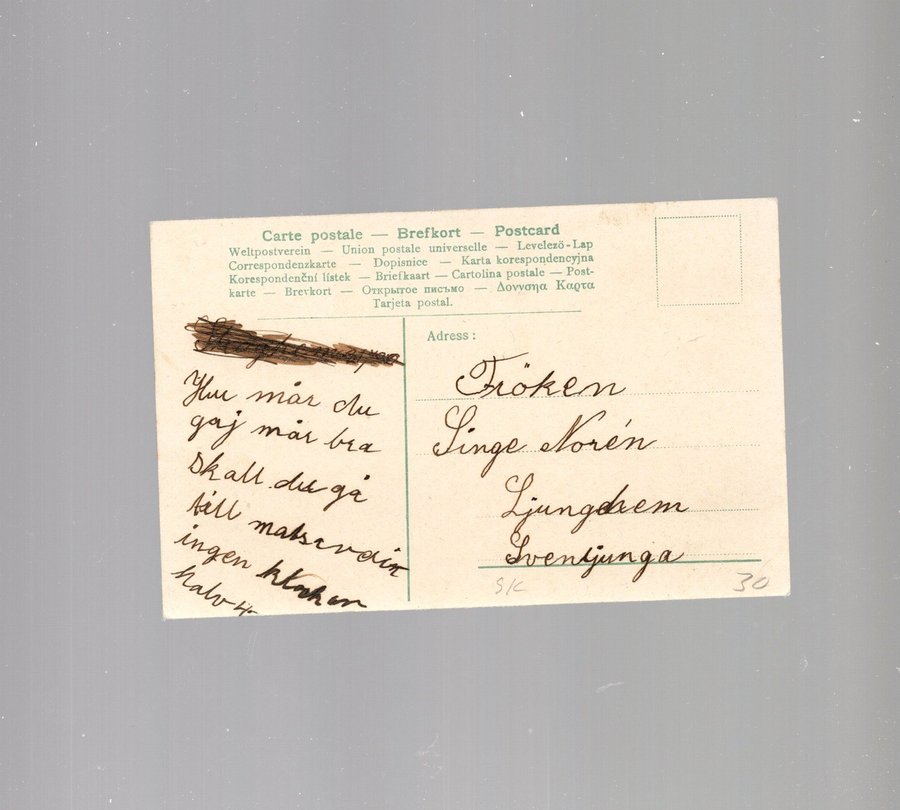 Carte postale — Brefkort — Postcard
Weltpostverein — Union postale universelle — Levelezö-Lap
Correspondenzkarte — Dopisnice — Karta korespondencyjna
Korespondenční lístek — Briefkaart — Cartolina postale — Post-
karte — Brevkort — Открытое письмо — Δουνσηα Καρτα
Tarjeta postal.
Hur mår du
gaj mår bra
skall du gå
till
ingen klockan
halv 4
Adress:
Fröken
Singe Norén
Ljunghem
Svenljunga
S/C 30